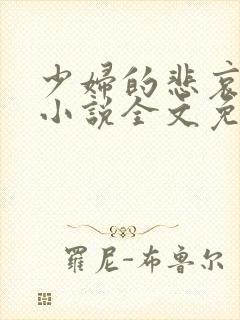 少婦的悲哀
小說全文免
羅尼-布魯尔